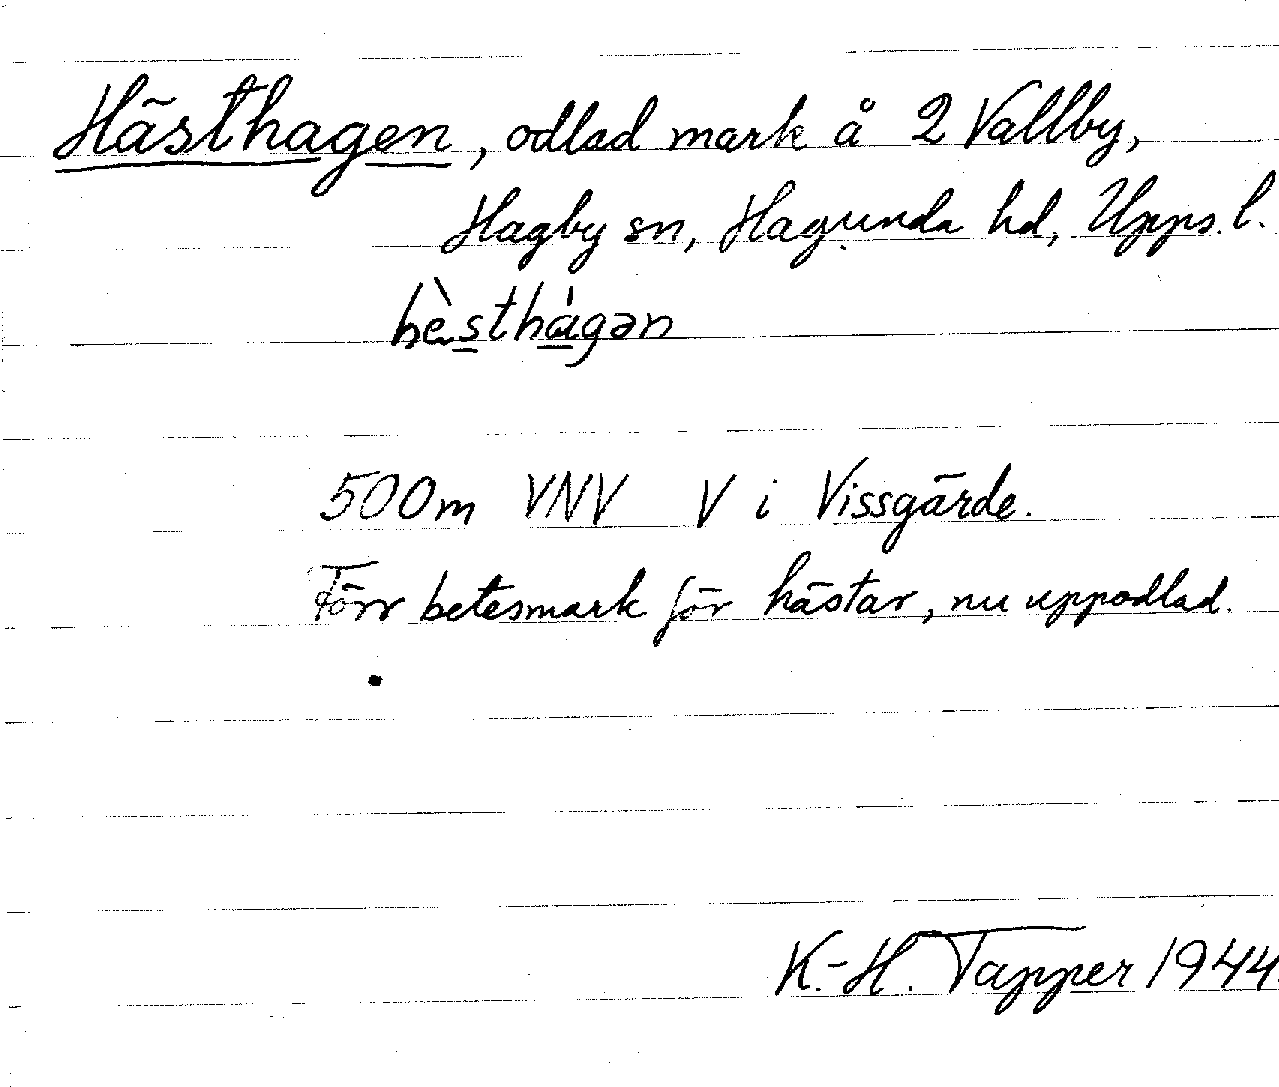 Hästhagen, odlad mark å 2 Vallby,
Hagby sn, Hagunda hd, Upps. l.
hèsthágən
500m VNV V i Vissgärde.
Förr betesmark för hästar, nu uppodlad.
K.-H. Tapper 1944.